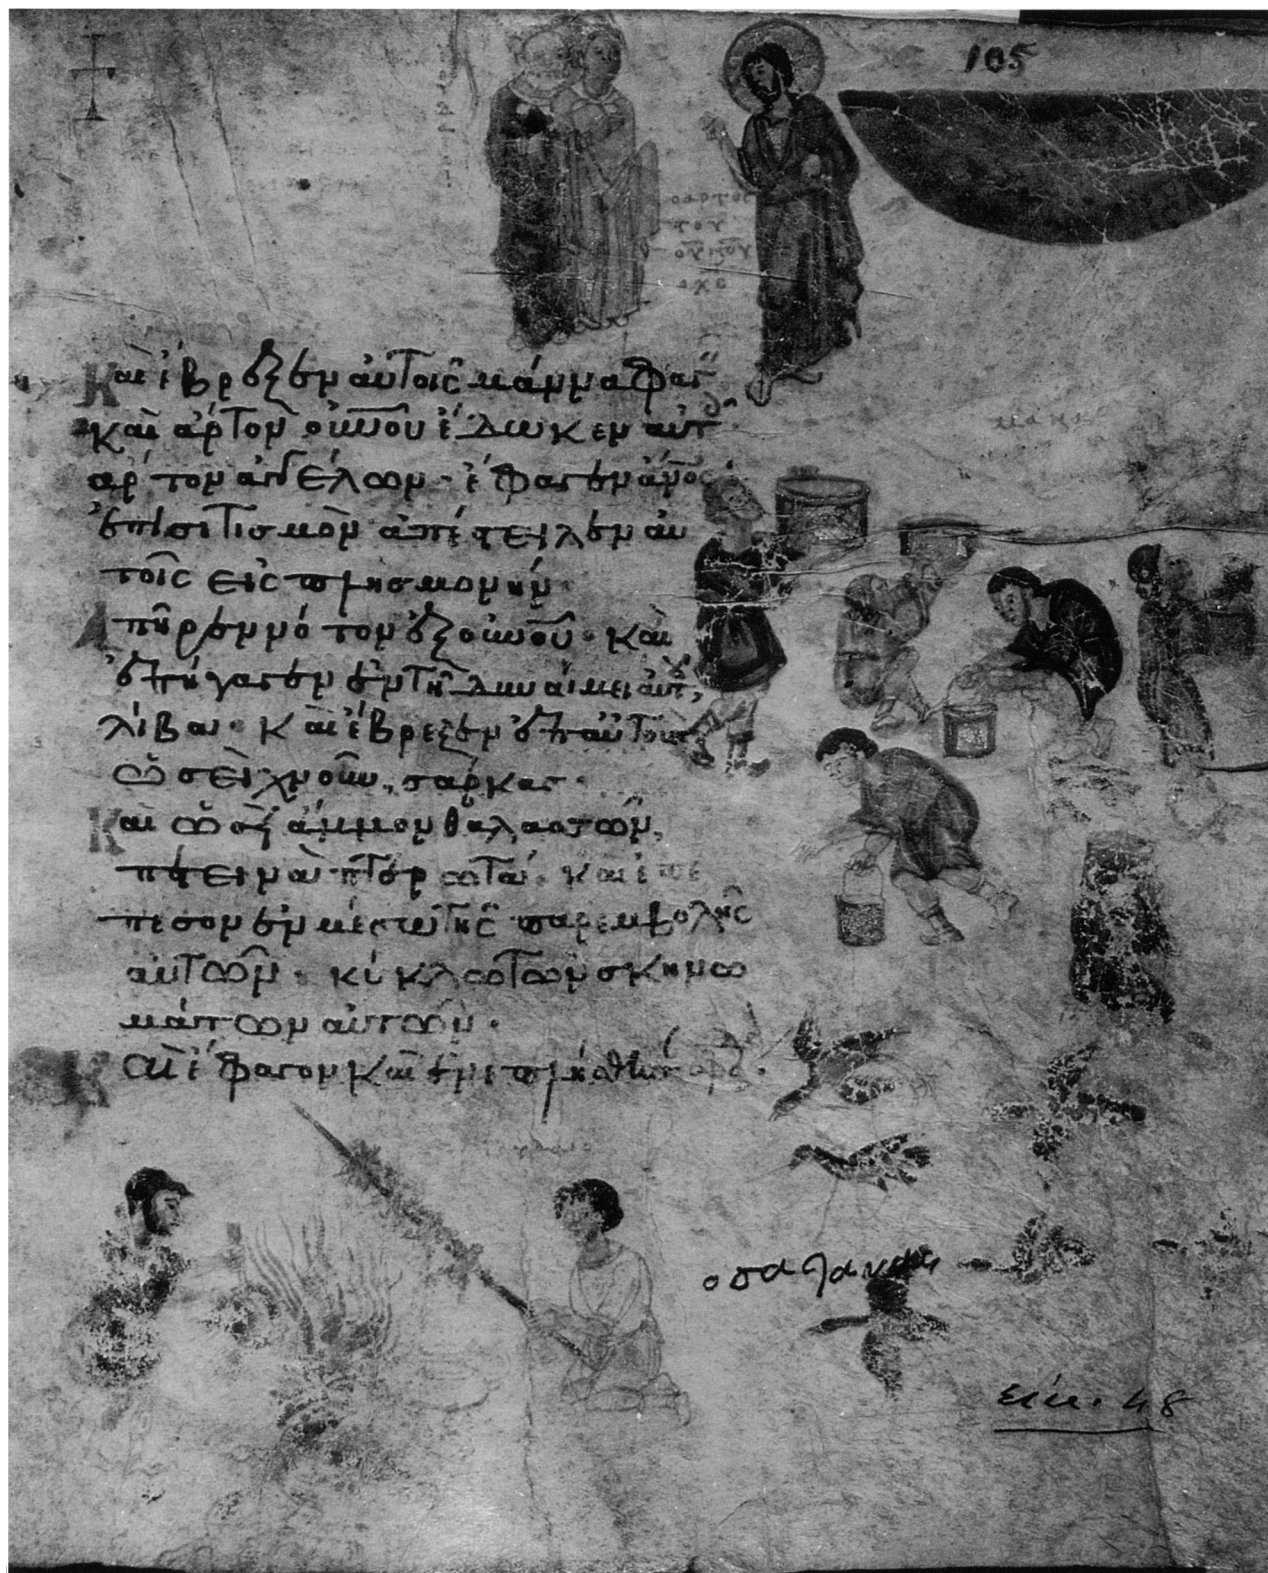 105
ο αρτος
του
ουνου
Καὶ ἔβρεξεν αὐτοῖς μάννα φαγ
καὶ ἄρτον οὐνοῦ ἔδωκεν αὐτ
ἄρτον ἀγγέλων · ἔφαγεν ἄνος
ἐπισιτισμὸν ἀπέστειλεν αὐ
τοῖς εἰς πλησμονήν ·
Ἀπῆρεν νότον ἐξ οὐνοῦ · καὶ
ἐπήγαγεν ἐν τῇ δυνάμει αὐτοῦ
λίβα · καὶ ἔβρεξεν ἐπ αὐτοὺς
ὡσεὶ χνοῦν σάρκας ·
Καὶ ὡσεὶ ἄμμον θαλασσῶν
πετεινὰ πτερωτά · καὶ ἐπέ
πεσον ἐν μέσῳ τῆς παρεμβολῆς
αὐτῶν · κύκλῳ τῶν σκηνω
μάτων αὐτῶν ·
Καὶ ἔφαγον καὶ ἐνεπλήσθησαν
μαννα
ο σατανας
εἰκ. 48